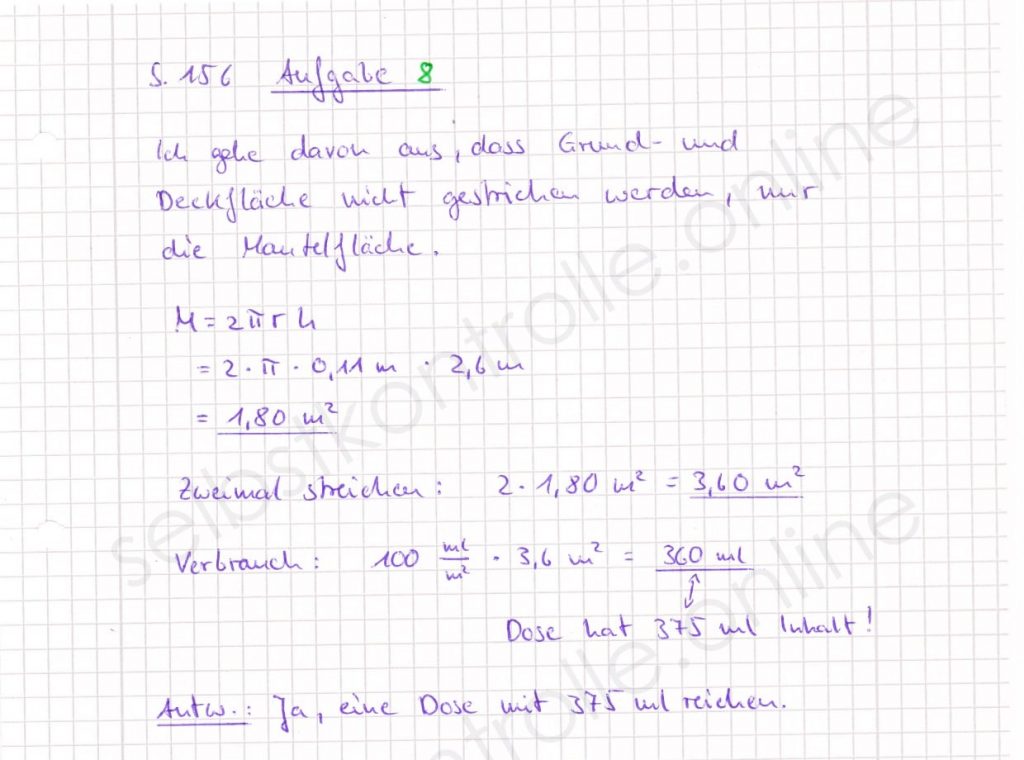 S. 156 Aufgabe 8
Ich gehe davon aus, dass Grund- und
Deckfläche nicht gestrichen werden, nur
die Mantelfläche.
M = 2 π r h
= 2 · π · 0,11 m · 2,6 m
= 1,80 m²
Zweimal streichen: 2 · 1,80 m² = 3,60 m²
Verbrauch: 100 ml/m² · 3,6 m² = 360 ml
Dose hat 375 ml Inhalt!
Antw.: Ja, eine Dose mit 375 ml reichen.
selbstkontrolle.online
selbstkontrolle.online